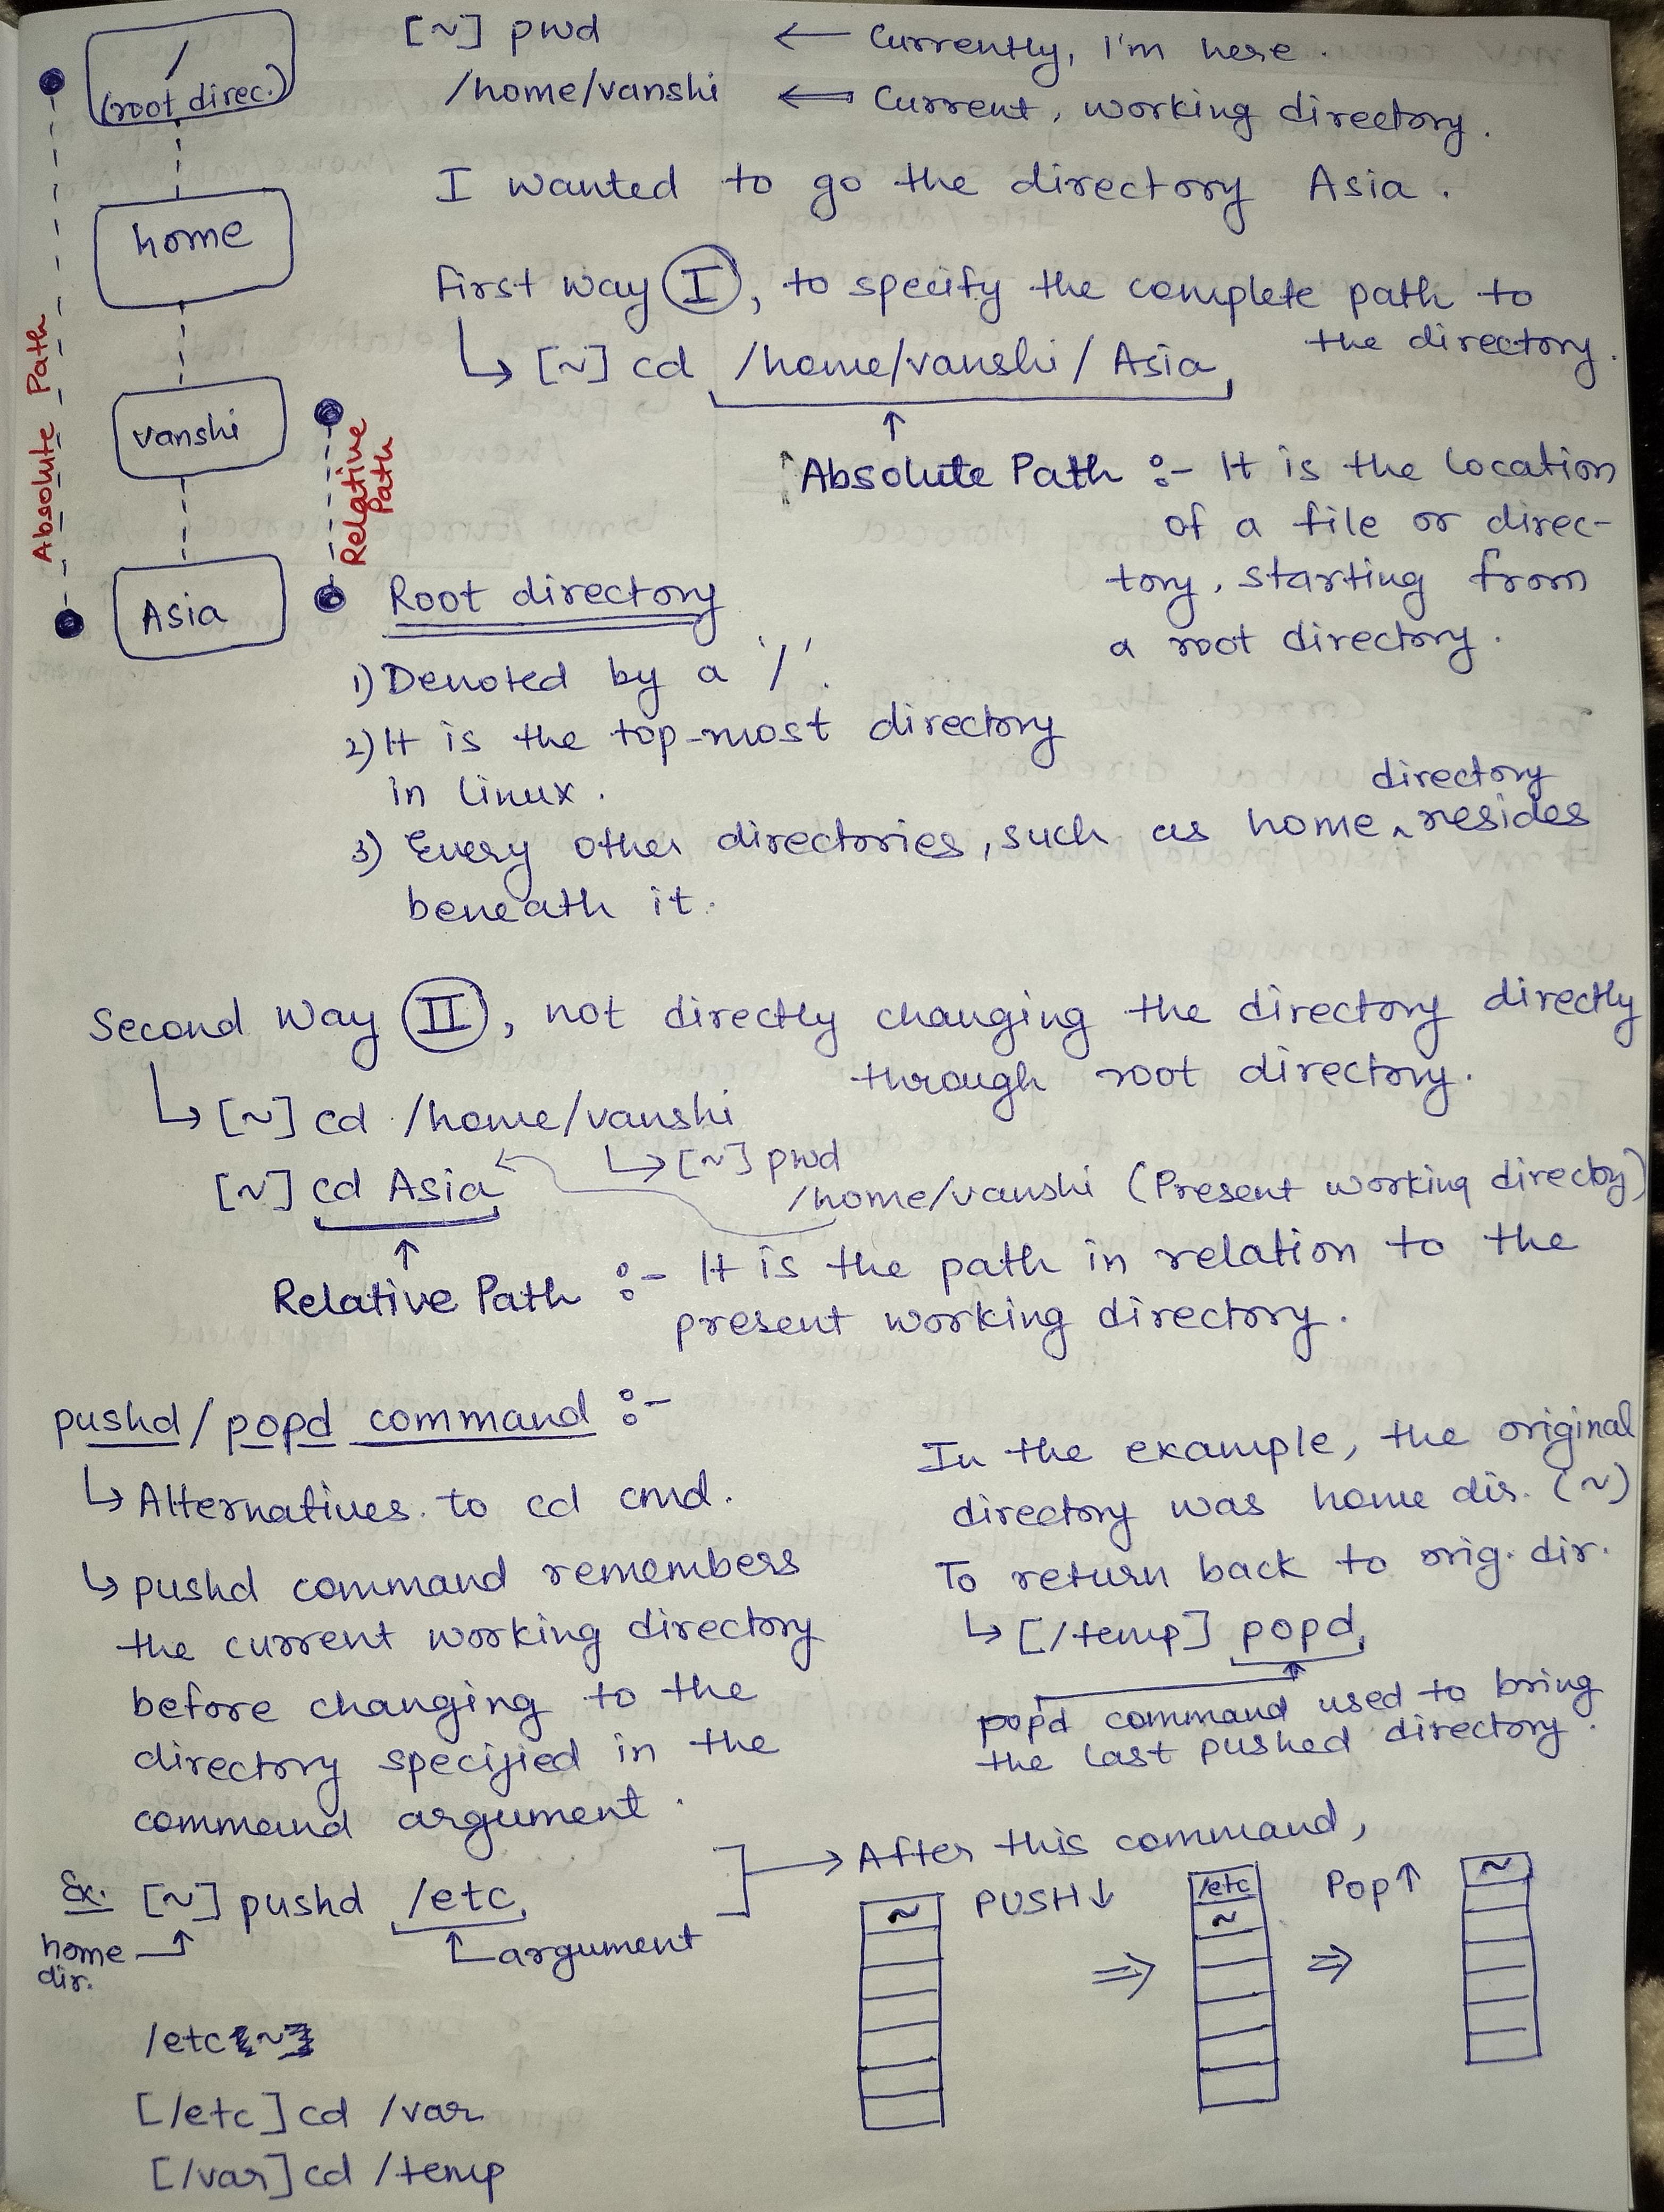 /
(root direc.)
home
vanshi
Asia
Absolute Path
Relative
Path
[~] pwd ← Currently, I'm here.
/home/vanshi ⇐ Current, working directory.
I wanted to go the directory Asia.
First way (I), to specify the complete path to
the directory.
↳ [~] cd /home/vanshi/Asia
↑
Absolute Path :- It is the location
of a file or direc-
tory, starting from
a root directory.
Root directory
1) Denoted by a '/'.
2) It is the top-most directory
in linux.
directory
3) Every other directories, such as home ^ resides
beneath it.
Second Way (II), not directly changing the directory directly
through root directory.
↳ [~] cd /home/vanshi
↳ [~] pwd
[~] cd Asia
/home/vanshi (Present working directoy)
↑
Relative Path :- It is the path in relation to the
present working directory.
pushd/popd command :-
↳ Alternatives to cd cmd.
↳ pushd command remembers
the current working directory
before changing to the
directory specified in the
command argument.
Ex. [~] pushd /etc
home
dir.
argument
/etc
[/etc] cd /var
[/var] cd /temp
In the example, the original
directory was home dir. (~)
To return back to orig. dir.
↳ [/temp] popd
popd command used to bring
the last pushed directory.
→ After this command,
~
PUSH↓
⇒
/etc
~
Pop↑
⇒
~